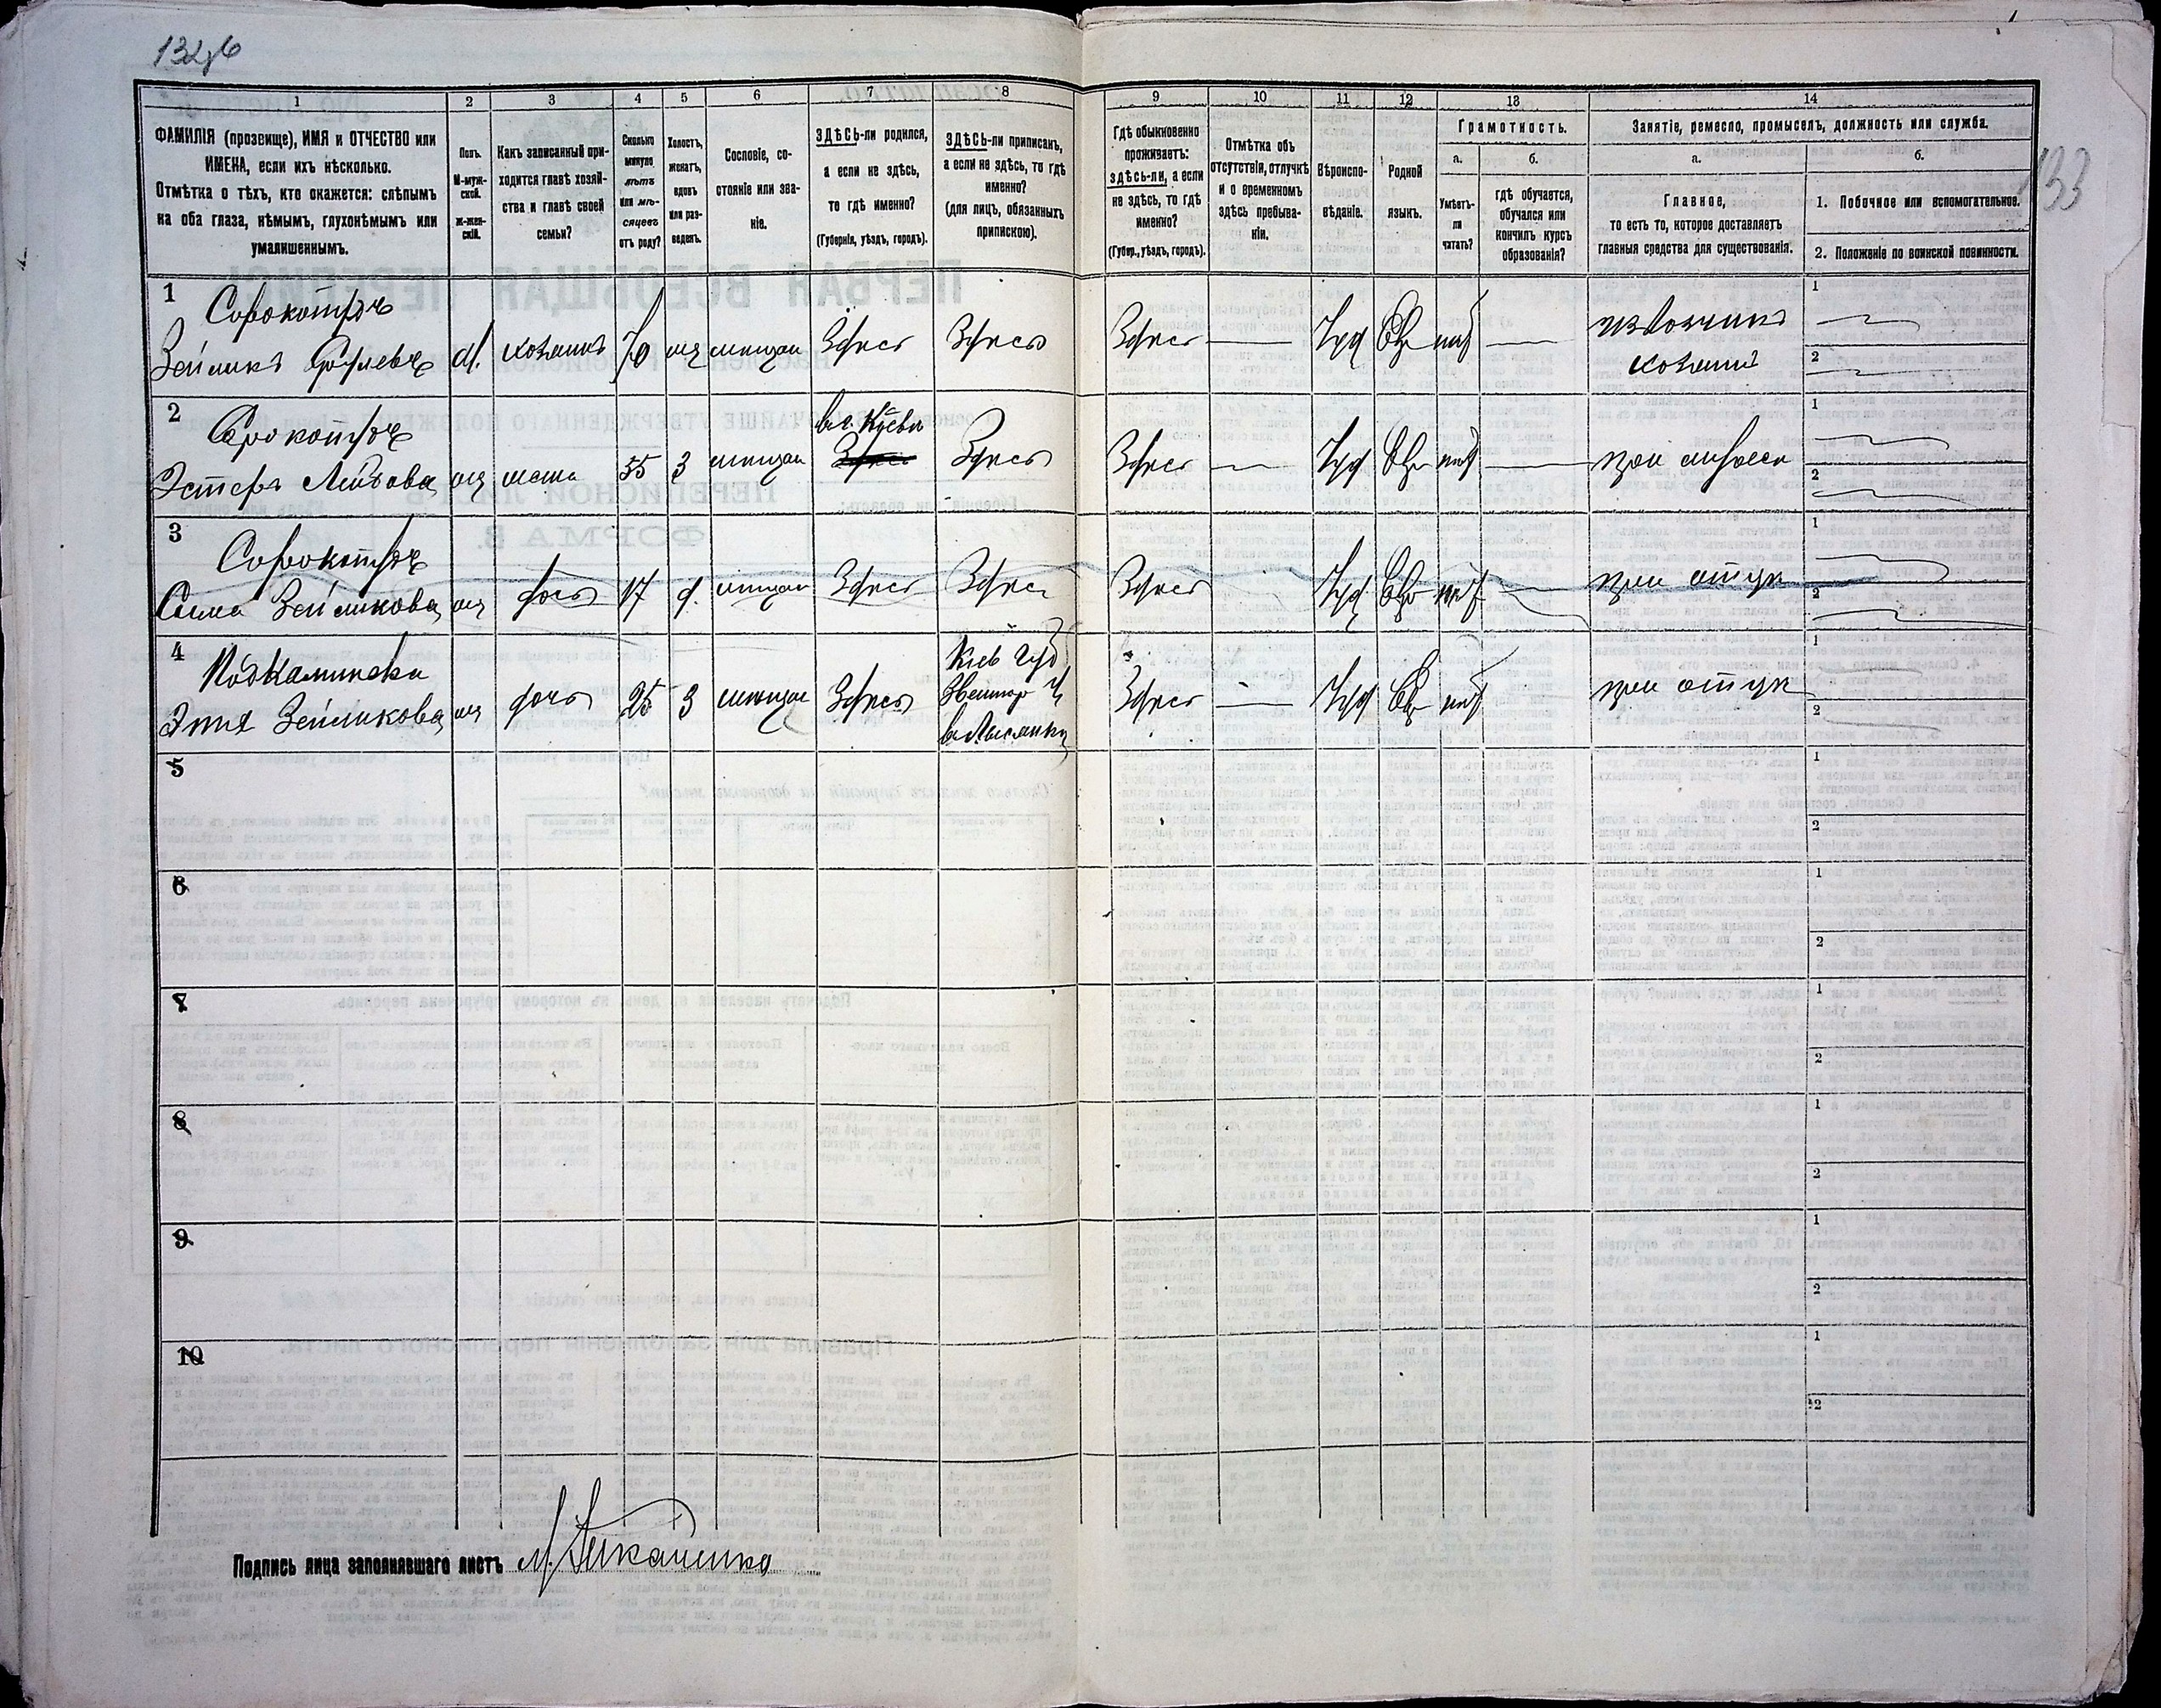 132 об
1 2 3 4 5 6 7 8 9 10 11 12 13 14
ФАМИЛІЯ (прозвище), ИМЯ и ОТЧЕСТВО или ИМЕНА, если ихъ нѣсколько.
Отмѣтка о тѣхъ, кто окажется: слѣпымъ на оба глаза, нѣмымъ, глухонѣмымъ или умалишеннымъ.
Полъ. М-муж-ской. ж-жен-скій.
Какъ записанный при-ходится главѣ хозяй-ства и главѣ своей семьи?
Сколько минуло лѣтъ или мѣ-сяцевъ отъ роду?
Холостъ, женатъ, вдовъ или раз-веденъ.
Сословіе, со-стояніе или зва-ніе.
ЗДѢСЬ-ли родился, а если не здѣсь, то гдѣ именно?
(Губернія, уѣздъ, городъ).
ЗДѢСЬ-ли приписанъ, а если не здѣсь, то гдѣ именно?
(для лицъ, обязанныхъ припискою).
Гдѣ обыкновенно проживаетъ: здѣсь-ли, а если не здѣсь, то гдѣ именно?
(Губер., уѣздъ, городъ).
Отмѣтка объ отсутствіи, отлучкѣ и о временномъ здѣсь пребыва-ніи.
Вѣроиспо-вѣданіе.
Родной языкъ.
Грамотность.
а. Умѣетъ-ли читать?
б. гдѣ обучается, обучался или кончилъ курсъ образованія?
Занятіе, ремесло, промыселъ, должность или служба.
а. Главное, то есть то, которое доставляетъ главныя средства для существованія.
б.
1. Побочное или вспомогательное.
2. Положеніе по воинской повинности.
133
1 Сорокотягъ
Зейликъ М. хозяинъ 70 Здѣсь Здѣсь Здѣсь Іуд Евр извозчикъ
хозяинъ
1
2
2 Сорокотягъ въ г. Кіевѣ
Эстеръ Лейбова жена 35 З Здѣсь Здѣсь Здѣсь Іуд Евр при мужѣ
1
2
3 Сорокотягъ
Сима Зейликова дочь 17 д. Здѣсь Здѣсь Здѣсь Іуд Евр при отцѣ
1
2
4 Подкаминска Кіев Губ
Этля Зейликова дочь 25 З Здѣсь Звенигор у Здѣсь Іуд Евр при отцѣ
в Лысянки
1
2
5
1
2
6
1
2
7
1
2
8
1
2
9
1
2
10
1
2
Подпись лица заполнявшаго листъ